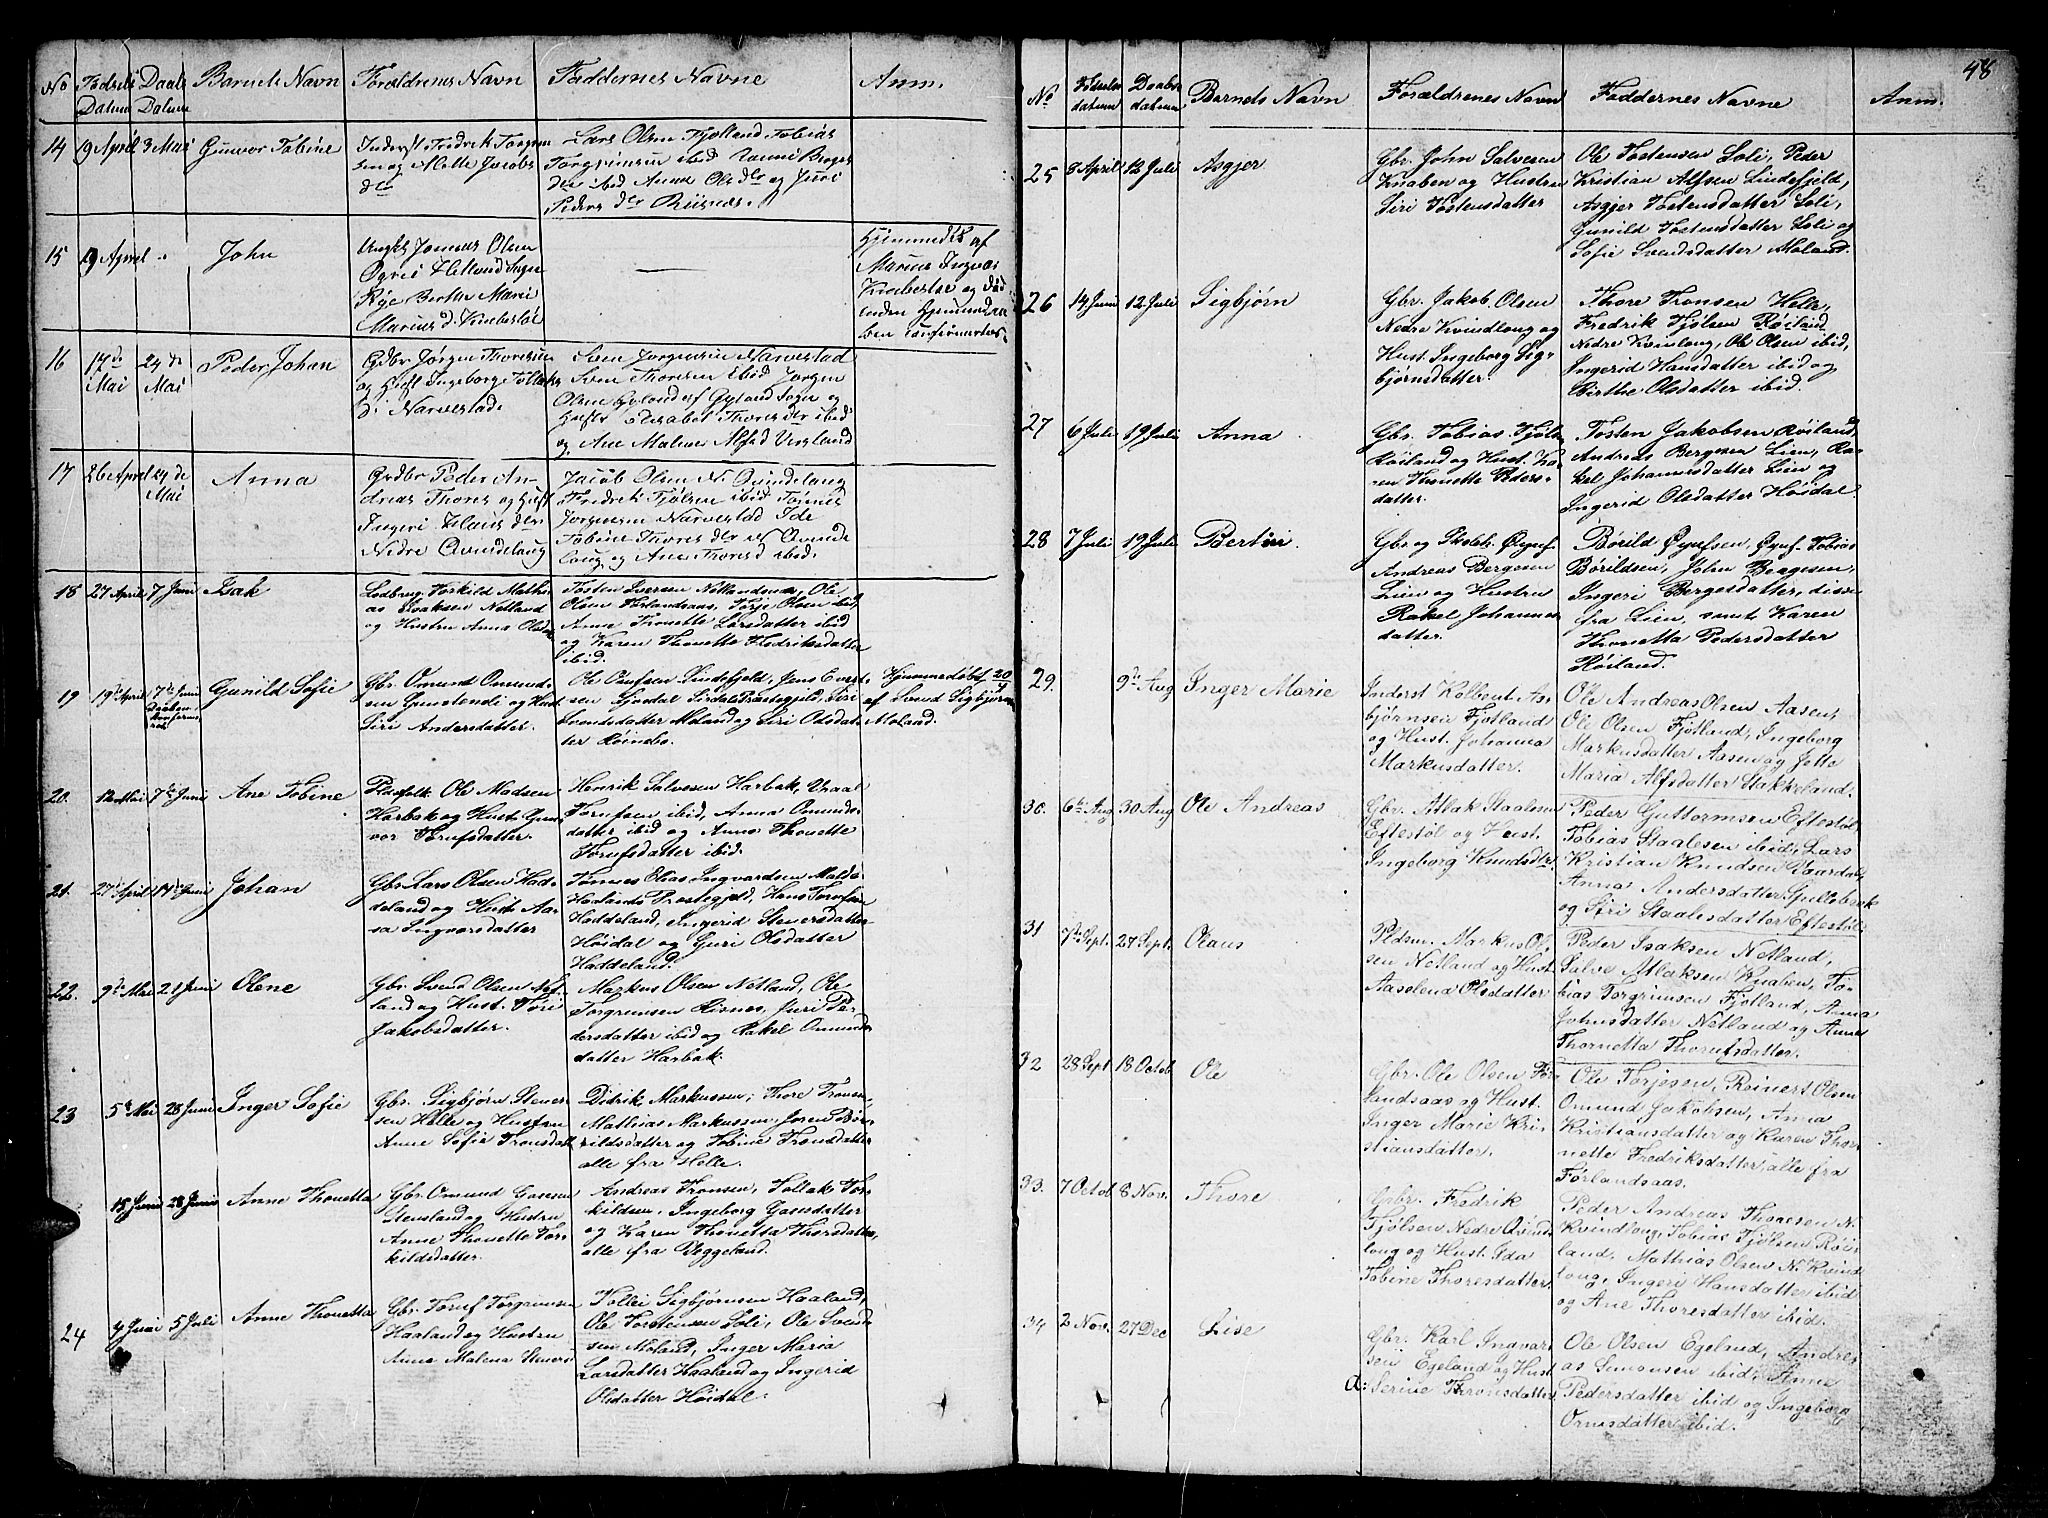 No Fødsels Datum Daabs Datum Barnets Navn Forældrenes Navn Faddernes Navne Anm.
14 9 April 3 Mai Gunvor Tobine
Inderst Fredrik Torgrim
sen og Mette Jacobs
dtr
Lars Olsen Fjotland Tobias
Torgrimsen ibid Berges
dtr ibid Anne Ols dtr og Juri
Peders dtr Risnes.
15 9 April " John
Ungkl Jonnas Olsen
Øgrei Helland Sogn
Birthe Marie
Marius d. Knebestøl
—
Hjemmedøbt af
Marius
Knebestøl og død
inden Hjemmedaa
ben confirmertes.
16 17de Mai 24 de Mai Peder Johan
Grdbr Jørgen Thoresen
og Hust Ingeborg Tollaks
d. Narvestad.
Sven Jorgensen Narvestad
Sven Thoresen ibid Jorgen
Olsen Gyland af Gyland Sogn og
Hust Elisabet Thores dtr ibid
og Ane Malene Alfs d
17 26 April 24 de Mai Anna
Grdbr Peder An-
dreas Thores og Hust
Ingeri Hans dtr
Nedre Qvindelaug
Jacob Olsen N. Qvindelaug
Fredrik Fjølsen ibid Tønnes
Jorgensen Narvestad Ide
Tobine Thores dtr N Qvinde
laug og Ane Thores d ibid.
18 27 April 7 Juni Isak
Torkild Mathi-
as Isaksen Netland
og Hustru Anna Olsdtr
Tosten Iversen Netlandsnes, Ole
Olsen Førlandsaas, Terje Olsen ibid,
Anne Tonette Larsdatter ibid
og Karen Thonette Fredriksdatter
ibid.
19 19de April 7de Juni Gunild Sofie
Daaben
konferme-
ret
Gbr. Omund Omund-
sen Gunstendi og Hust
Siri Andersdatter.
Ole Omfsen Lindefjeld, Jens Evert-
sen Sjodal Sirdals Præstegjeld, Siri
Svendsdatter Moland og Siri Olsdat-
ter Roinebo.
Hjemmedøbt 20/4
af Svend Sigbjørn
Moland.
20. 12 Mai 7de Juni Ane Tobine
Plasfolk Ole Madsen
Harbak og Hust Gun-
vor Tørufsdatter.
Henrik Salvesen Harbak, Uraal
Tørufsen ibid, Anna Omunds-
datter ibid og Anne Thonette
Tørufsdatter ibid.
21. 27de April 14de Juni Johan
Gbr. Lars Olsen Had-
deland og Hust Aa-
sa Ingvarsdatter
Tønnes Elias Ingvardsen Malde
Haalands Præstegjeld, Hans Torufsen
Haddeland, Ingerid Stenersdatter
Høidal og Guri Olsdatter
Haddeland.
22. 9de Mai 21 Juni Olene
Gbr. Svend Olsen Net-
land og Hust. Siri
Jakobsdatter.
Markus Olsen Netland, Ole
Torgrimsen Risnes, Juri Pe-
dersdatter ibid og Rakel Omunds
datter Harbak.
23 5te Mai 28 Juni Inger Sofie
Gbr. Sigbjørn Stener-
sen Helle og Hustru
Anne Sofie Tronsdatt
Didrik Markussen; Thore Tronsen,
Mathias Markussen, Joren Bø-
rildsdatter og Tobine Tronsdatter
alle fra Helle.
15 Juni 28 Juni Anne Thonetta
Gbr. Omund Gassen
Stensland og Hustru
Anne Thonette Tor-
kildsdatter.
Andreas Tronsen, Tollak Tor-
kildsen, Ingeborg Gassdatter
og Karen Thonetta Thorsdatter,
alle fra Veggeland.
24 4 Juni 5 Juli Anne Thonetta
Gbr. Toruf Torgrimsen
Haaland og Hustru
Anne Malena Stener
Tollei Sigbjørnsen Haaland,
Ole Torstensen Soli, Ole Svend-
sen Moland, Inger Maria
Larsdatter Haaland og Ingerid
Olsdatter Høidal.
48
No Fødsels datum Daabs datum Barnets Navn Forældrenes Navn Faddernes Navne Anm.
25 8 April 12 Juli Asgjer
Gbr. John Salvesen
Knaben og Hustru
Siri Tostensdatter
Ole Tostensen Soli, Peder
Kristian Alfsen Lindefjeld,
Asgjer Tostensdatter Soli,
Gunild Tostensdatter Soli og
Sofie Svendsdatter Moland.
26 14 Juni 12 Juli Sigbjørn
Gbr. Jakob Olsen
Nedre Kvindlong og
Hust. Ingeborg Sig-
bjørnsdatter.
Thore Tronsen Helle,
Fredrik Fjølsen Røiland
Nedre Kvinlong, Ole Olsen ibid,
Ingerid Hansdatter ibid og
Birthe Olsdatter ibid.
27 6 Juli 19 Juli Anna
Gbr. Tobias Fjøls
Røiland og Hust. Ka-
ren Thonette Peders-
datter.
Tosten Jakobsen Røiland,
Andreas Bergesen Lien, Ra-
kel Johannesdatter Lien og
Ingerid Olsdatter Høidal
28 7 Juli 19 Juli Bertin.
Gbr og Skoleb. Øyuf
Andreas Bergesen
Lien og Hustru
Rakel Johannes
datter.
Børild Øyufsen, Øyuf Tobias
Børildsen, John Bergesen,
Ingeri Bergesdatter, disse
fra Lien, samt Karen
Thonetta Pedersdatter
Røiland.
29. 9de Aug Inger Marie
Inderst Kolbent As-
bjørnsen Fjotland
og Hust. Johanna
Markusdatter.
Ole Andreas Olsen Aasen,
Ole Olsen Fjotland, Ingeborg
Markusdatter Aasen og Jette
Maria Alfsdatter Stakkeland.
30. 6te Aug 30 Aug Ole Andreas
Gbr. Atlak Staalesen
Eftestøl og Hust.
Ingeborg Knudsdtr.
Peder Guttormsen Eftestøl,
Tobias Staalesen ibid, Lars
Kristian Knudsen Vaardal,
Anna Andersdatter Gullebrek
og Siri Staalesdatter Eftestøl.
31 7de Sept. 27 Sept. Olaus
Pldsm. Markus Ol-
sen Netland og Hust.
Aaselena Olsdatter
Peder Isaksen Netland,
Salve Atlaksen Knaben, To-
bias Torgrimsen Fjotland, Anna
Johnsdatter Netland og Anne
Thornetta Thorufsdatter.
32 28 Sept 18 Octob Ole
Gbr. Ole Olsen Før-
landsaas og Hust.
Inger Marie Kri-
stiansdatter.
Ole Torjesen, Reinert Olsen
Omund Jakobsen, Anna
Kristiansdatter og Karen Thor-
nette Fredriksdatter, alle fra
Førlandsaas.
33. 7 Octob 8 Nov. Thore
Gbr. Fredrik
Fjølsen Nedre Qvind-
long og Hust. Ida
Tobine Thoresdatter.
Peder Andreas Thoresen N.
Kvindlong, Tobias Fjølsen Røi-
land, Mathias Olsen N. Kvind
long, Ingeri Hansdatter ibid
og Ane Thoresdatter ibid.
34 2 Nov. 27 Dec Lise
Gbr. Karl Ingvar-
sen Egeland og Hust
a: Serine Thronsdatter
Ole Olsen Egelnd, Andre-
as Simonsen ibid, Anne
Pedersdatter ibid og Ingeborg
Omusdatter ibid.